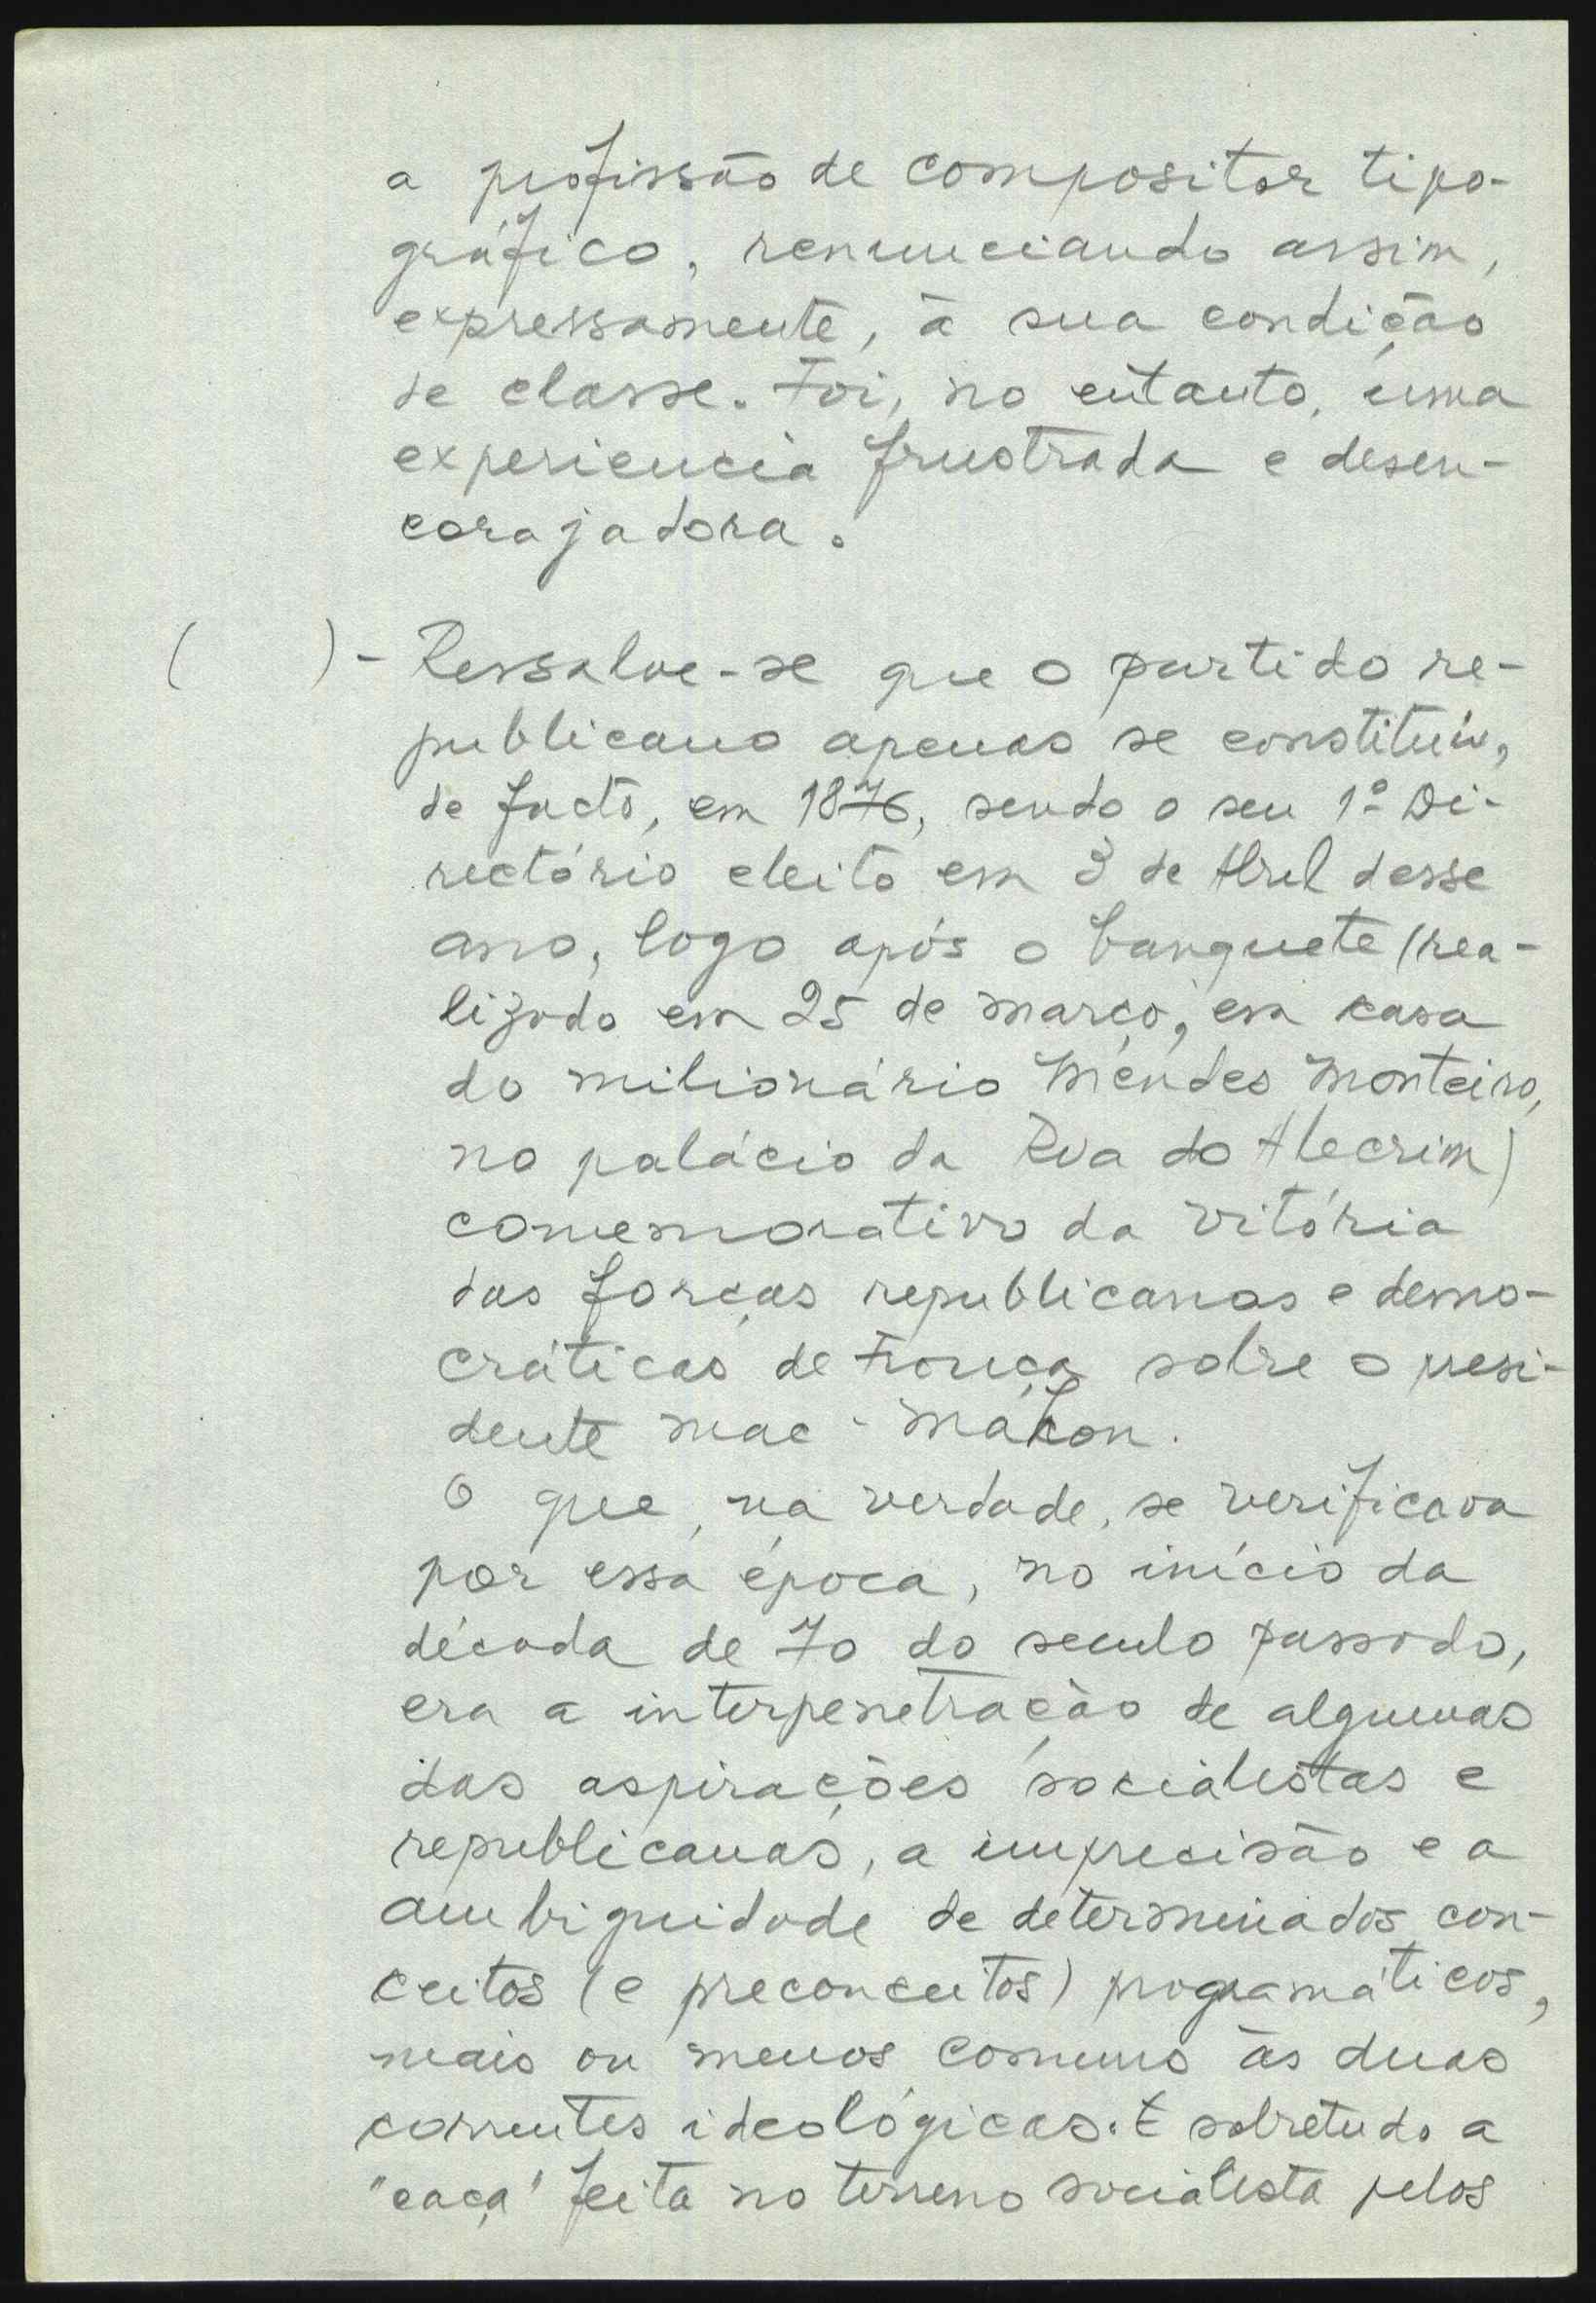 a profissão de compositor tipo-
gráfico, renunciando assim,
expressamente, à sua condição
de classe. Foi, no entanto, uma
experiencia frustrada e desen-
corajadora.
( ) - Ressalve-se que o partido re-
publicano apenas se constituíu,
de facto, em 1876, sendo o seu 1º Di-
rectório eleito em 3 de Abril desse
ano, logo após o banquete (rea-
lizado em 25 de março, em casa
do milionário Mendes Monteiro,
no palácio da Rua do Alecrim)
comemorativo da vitória
das forças republicanas e demo-
cráticas de França sobre o presi-
dente Mac-Mahon.
O que, na verdade, se verificava
por essa época, no início da
década de 70 do seculo passado,
era a interpenetração de algumas
das aspirações socialistas e
republicanas, a imprecisão e a
ambiguidade de determinados con-
ceitos (e preconceitos) programáticos,
mais ou menos comuns às duas
correntes ideológicas. E sobretudo a
"caça" feita no terreno socialista pelos